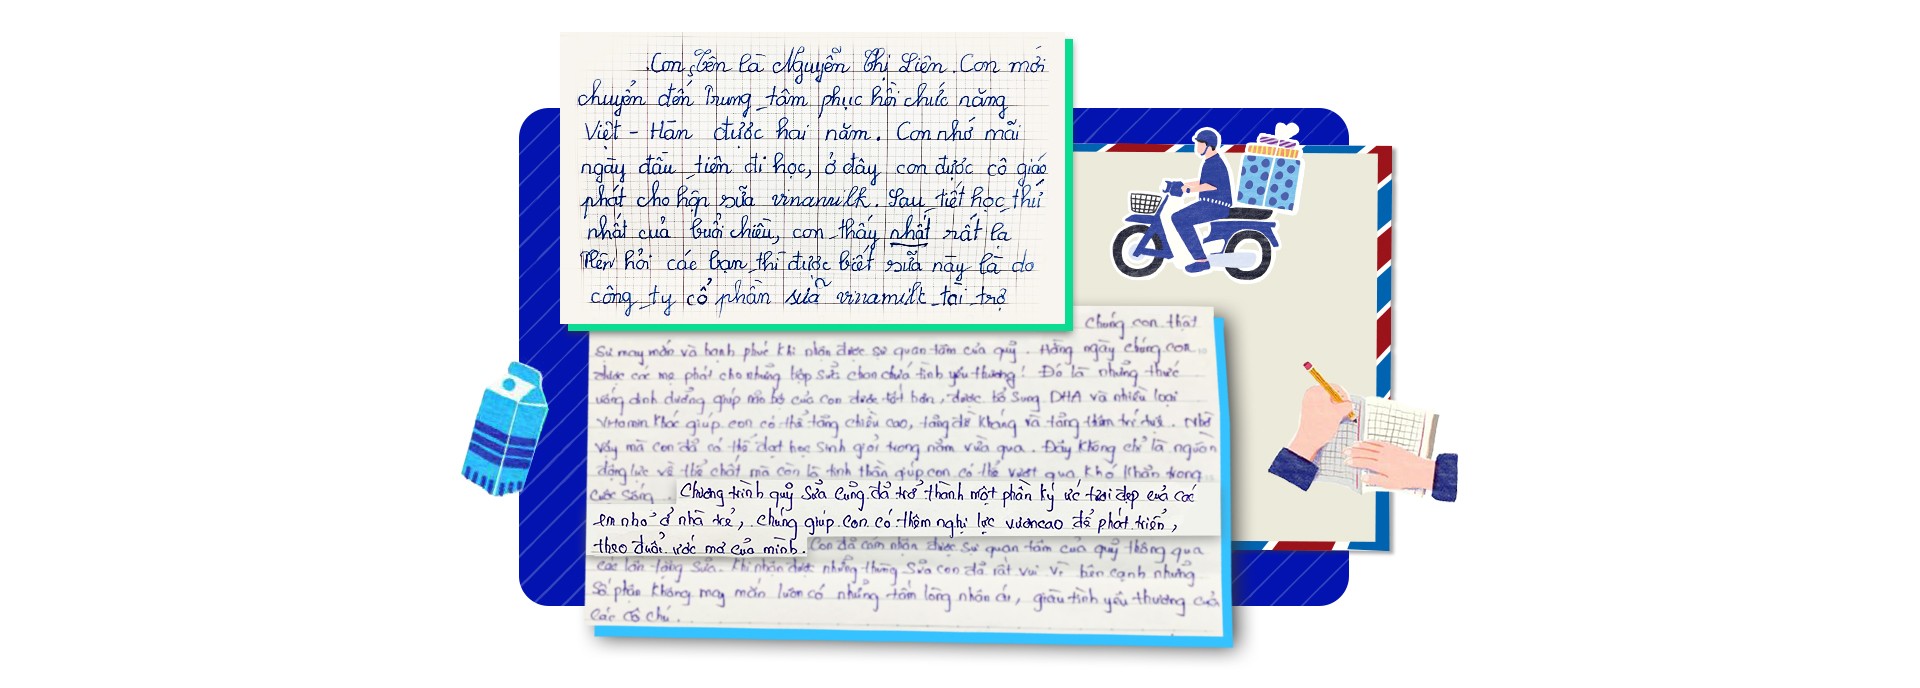 Con tên là Nguyễn Thị Liên. Con mới
chuyển đến Trung tâm phục hồi chức năng
Việt - Hàn được hai năm. Con nhớ mãi
ngày đầu tiên đi học, ở đây con được cô giáo
phát cho hộp sữa vinamilk. Sau tiết học thứ
nhất của buổi chiều, con thấy nhất rất lạ
Nên hỏi các bạn thì được biết sữa này là do
công ty cổ phần sữa vinamilk tài trợ
Chúng con thật
sự may mắn và hạnh phúc khi nhận được sự quan tâm của quỹ. Hằng ngày chúng con
được các mẹ phát cho những hộp sữa chan chứa tình yêu thương! Đó là những thức
uống dinh dưỡng giúp não bộ của con được tốt hơn, được bổ sung DHA và nhiều loại
vitamin khác giúp con có thể tăng chiều cao, tăng đề kháng và tăng thêm trí tuệ. Nhờ
vậy mà con đã có thể đạt học sinh giỏi trong năm vừa qua. Đây không chỉ là nguồn
động lực về thể chất mà còn là tinh thần giúp con có thể vượt qua khó khăn trong
cuộc sống. Chương trình quỹ sữa cũng đã trở thành một phần ký ức tươi đẹp của các
em nhỏ ở nhà trẻ, chúng giúp con có thêm nghị lực vươn cao để phát triển,
theo đuổi ước mơ của mình. Con đã cảm nhận được sự quan tâm của quỹ thông qua
các lần tặng sữa. Khi nhận được những thùng sữa con đã rất vui vì bên cạnh những
số phận không may mắn luôn có những tấm lòng nhân ái, giàu tình yêu thương của
các cô chú.